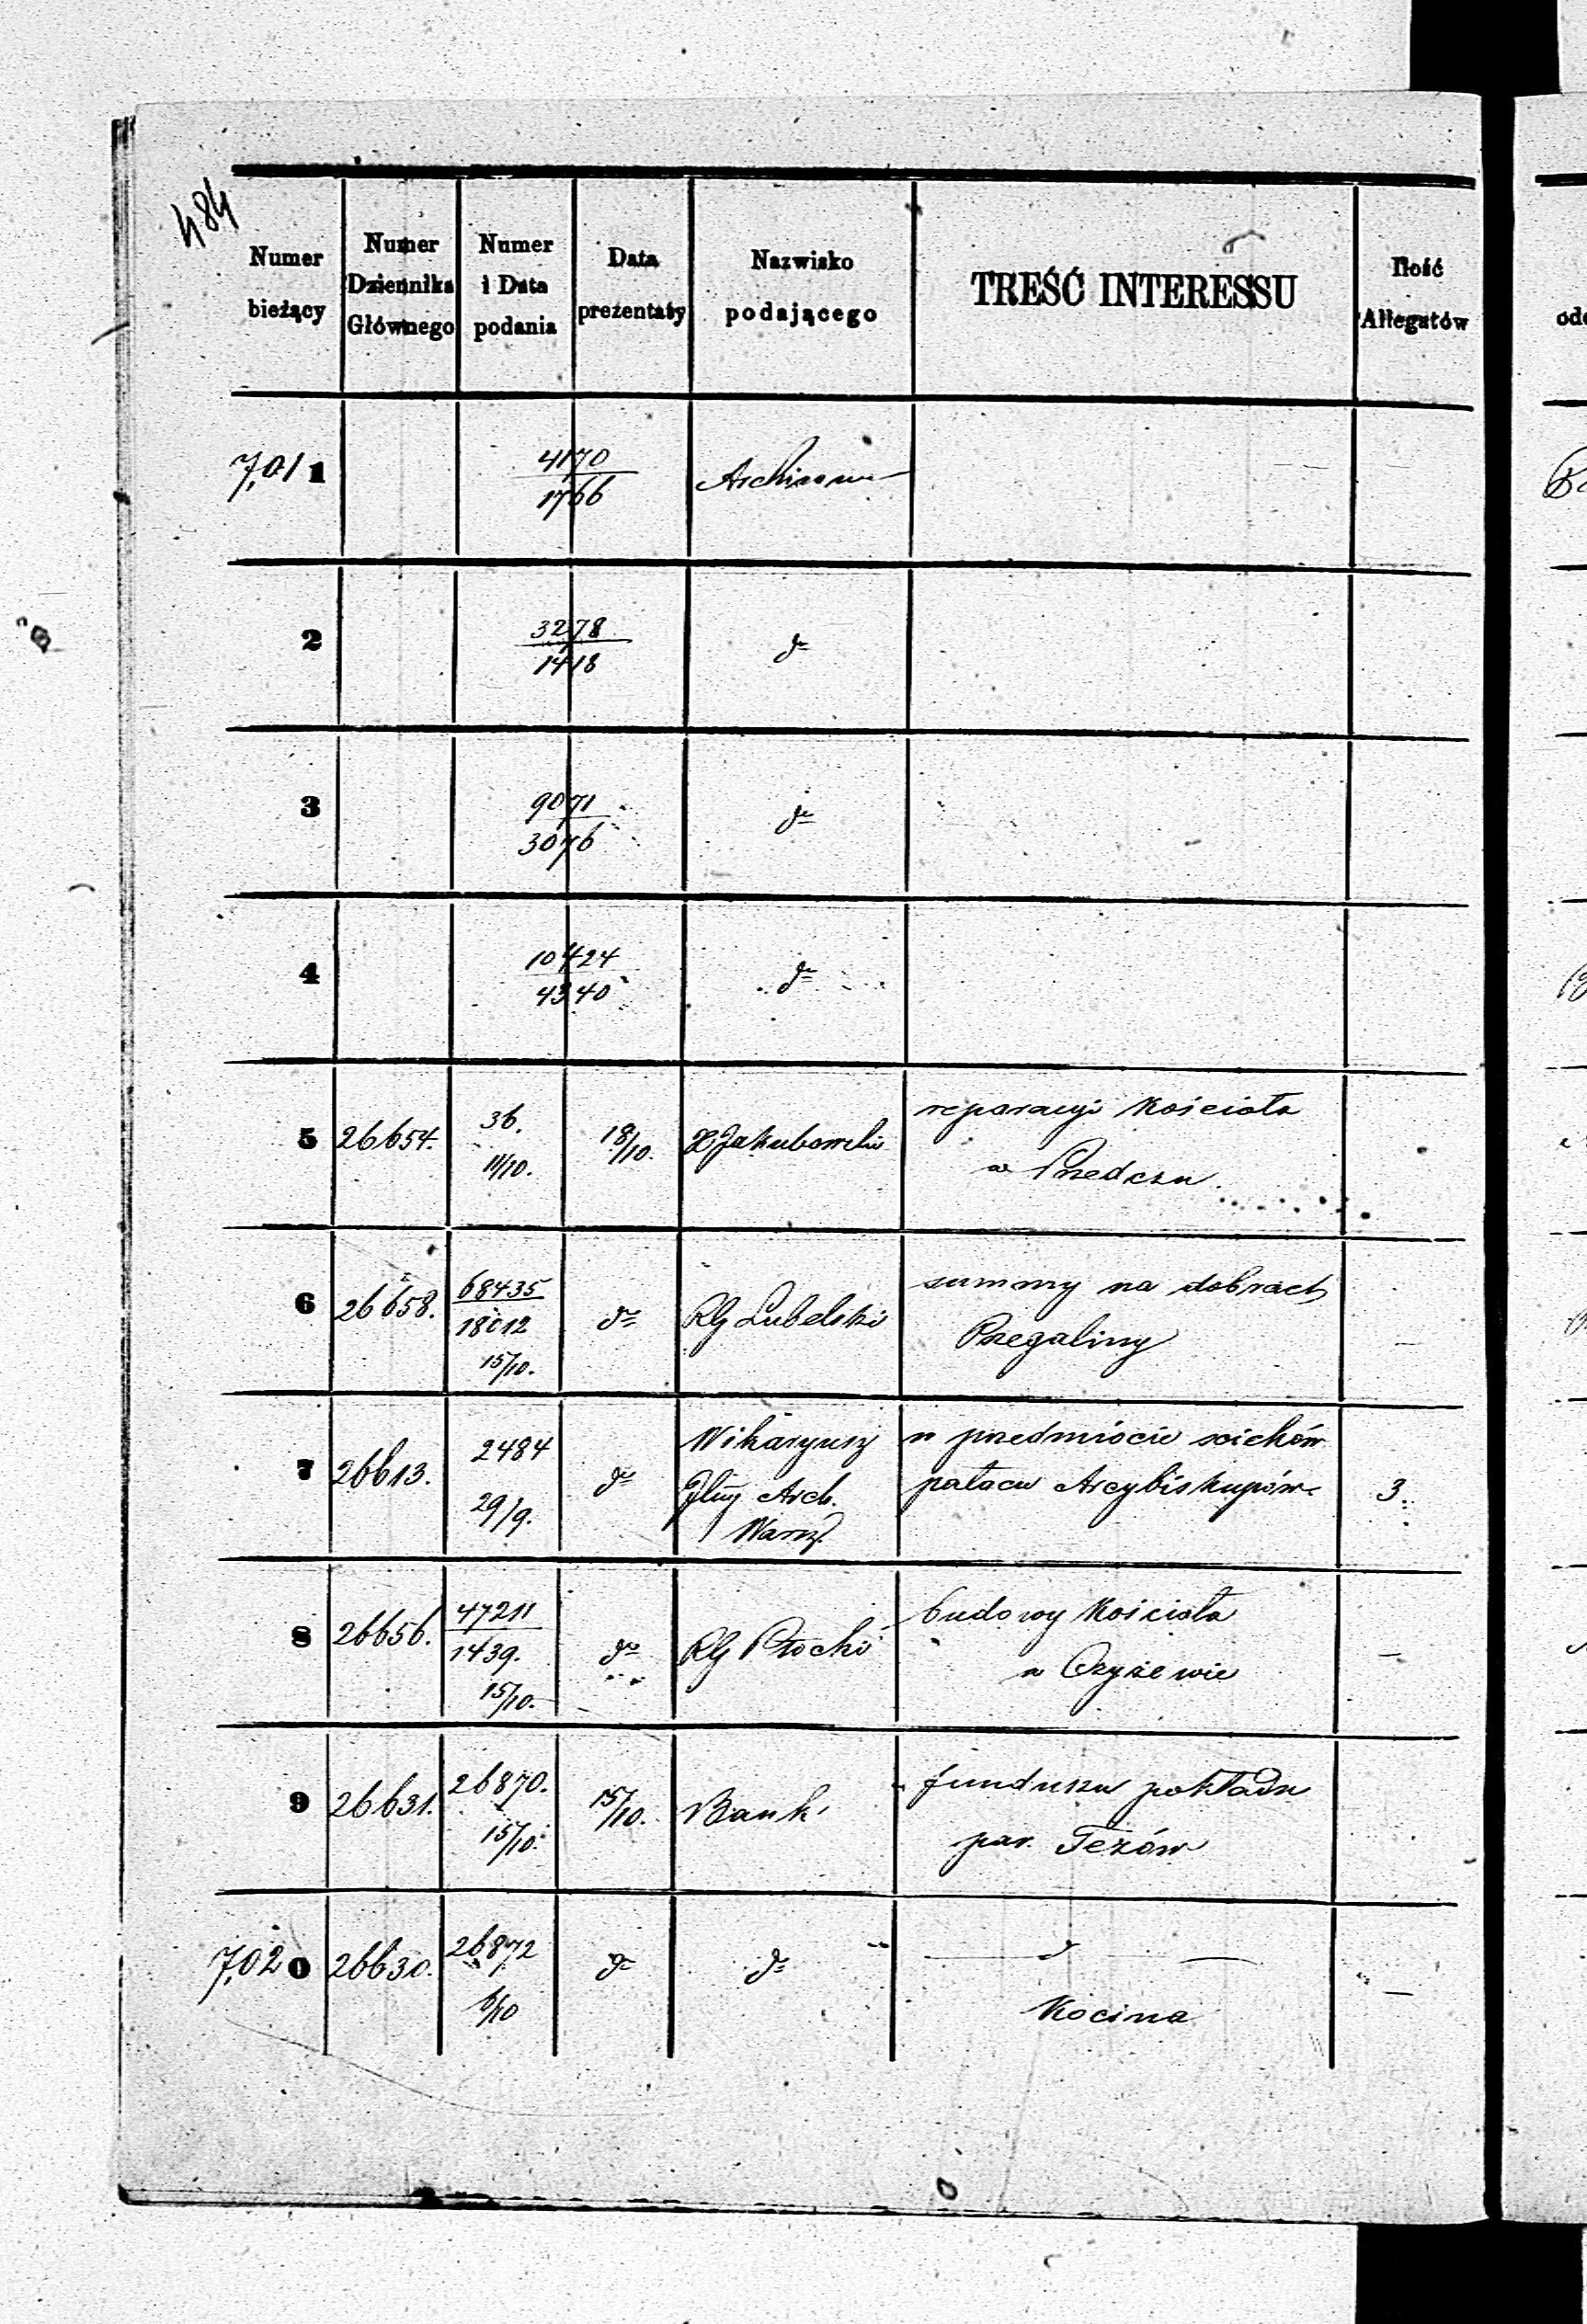 484
Numer bieżący
Numer Dziennika Głównego
Numer i Data podania
Data prezentaty
Nazwisko podającego
TREŚĆ INTERESSU
Ilość Allegatów
7,011 4170
1766
2 3278 do
1418
3 9071 do
3076
4 10424 do
4340
5 26654. 36. 18/10. X Jakubowski reparacyi Kościoła
11/10. w Przedczu.
6 26658. 68435 do RG Lubelski summy na dobrach
18012 Przegaliny
15/10.
7 26613. 2484 do Wikaryusz w przedmiocie ścieków
29/9. Jlny Arch. pałacu Arcybiskupów 3.
Warsz.
8 26656. 47211 do RG Płocki budowy Kościoła
1439. w Czyżewie
15/10.
9 26631. 26870. 15/10. Bank funduszu pokładu
15/10. par. Tezów
7,020 26630. 26872 do do d
6/10 Kocina